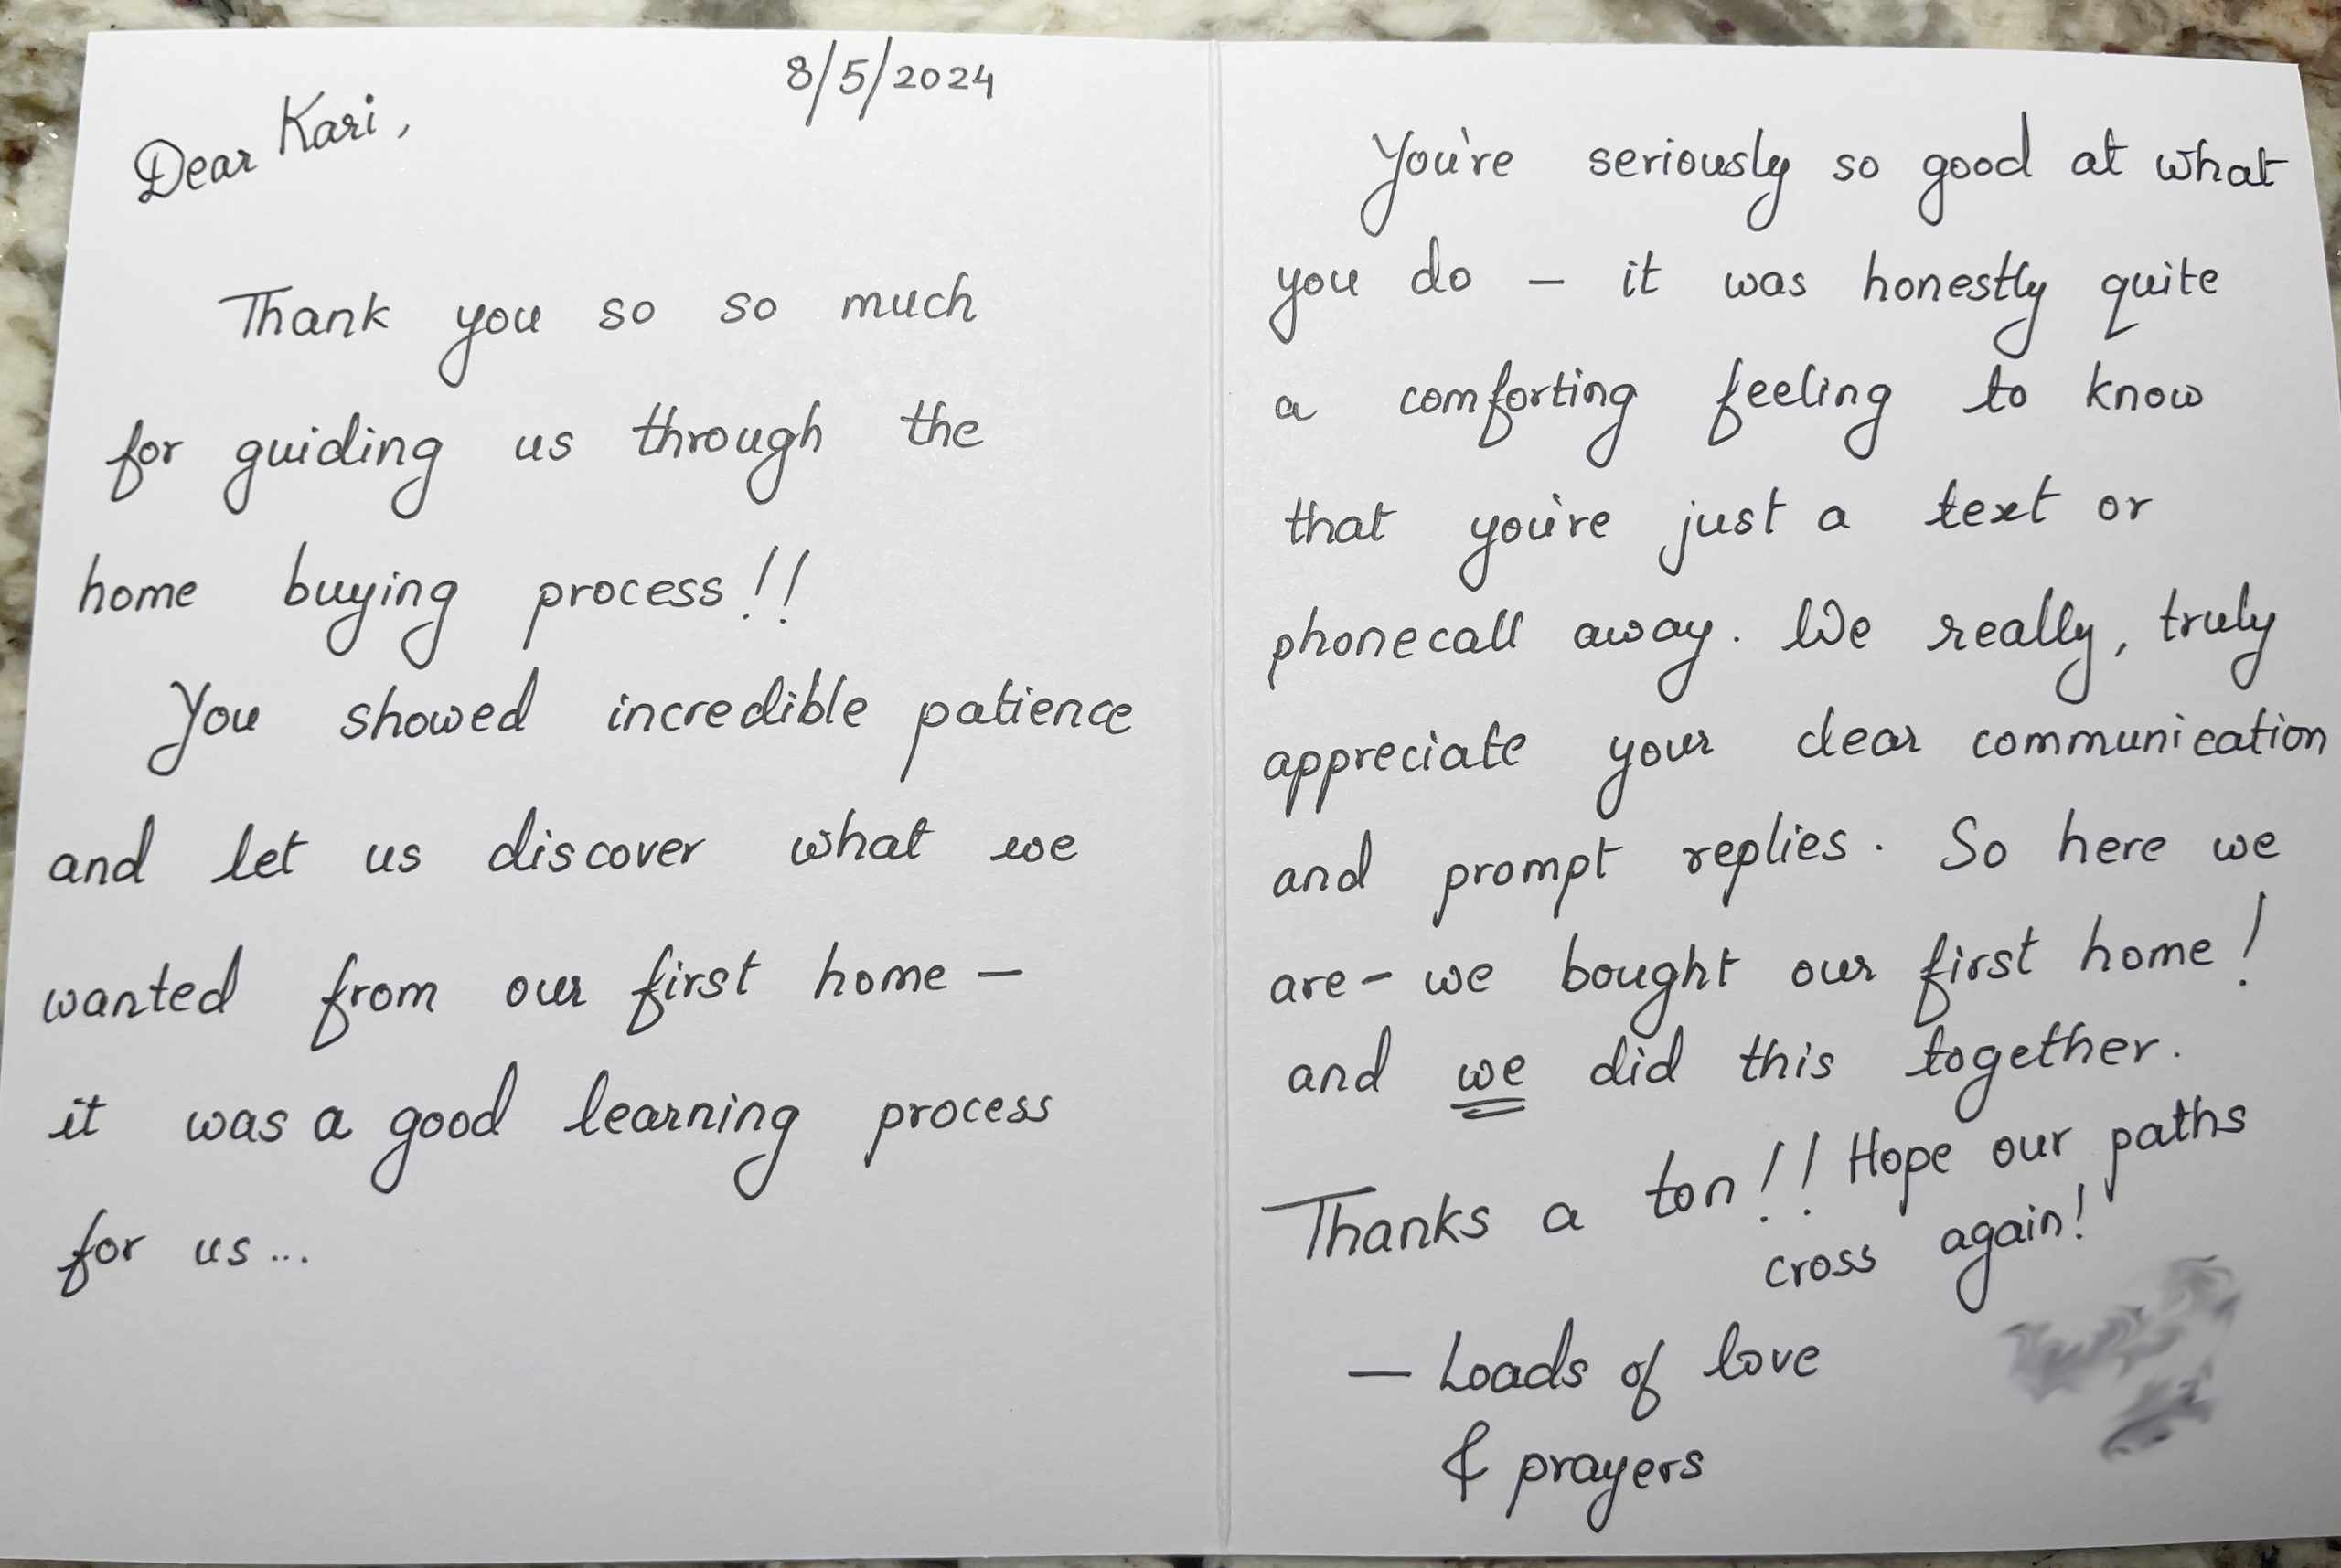 8/5/2024
Dear Kari,
Thank you so so much
for guiding us through the
home buying process!!
You showed incredible patience
and let us discover what we
wanted from our first home —
it was a good learning process
for us...
You're seriously so good at what
you do — it was honestly quite
a comforting feeling to know
that you're just a text or
phonecall away. We really, truly
appreciate your clear communication
and prompt replies. So here we
are - we bought our first home!
and we did this together.
Thanks a ton!! Hope our paths
cross again!
— Loads of love
& prayers